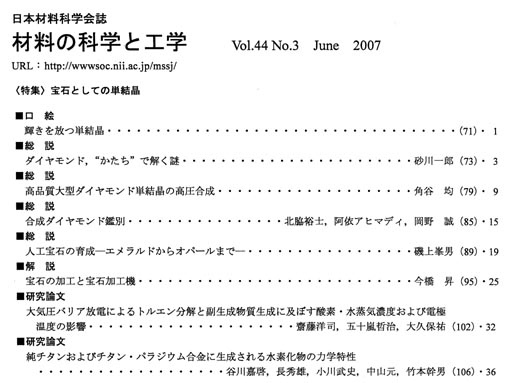 日本材料科学会誌
材料の科学と工学 Vol.44 No.3 June 2007
URL：http://wwwsoc.nii.ac.jp/mssj/
〈特集〉宝石としての単結晶
■口 絵
輝きを放つ単結晶・・・・・・・・・・・・・・・・・・・・・・・・・・・・・・・・・(71)・ 1
■総 説
ダイヤモンド，“かたち”で解く謎・・・・・・・・・・・・・・・・・・・・・砂川一郎 (73)・ 3
■総 説
高品質大型ダイヤモンド単結晶の高圧合成・・・・・・・・・・・・・・・・・・角谷 均 (79)・ 9
■総 説
合成ダイヤモンド鑑別・・・・・・・・・・・・・・・・北脇裕士，阿依アヒマディ，岡野 誠 (85)・15
■総 説
人工宝石の育成―エメラルドからオパールまで―・・・・・・・・・・・・・・・・磯上峯男 (89)・19
■解 説
宝石の加工と宝石加工機・・・・・・・・・・・・・・・・・・・・・・・・・今橋 昇 (95)・25
■研究論文
大気圧バリア放電によるトルエン分解と副生成物質生成に及ぼす酸素・水蒸気濃度および電極
温度の影響・・・・・・・・・・・・・・・・・齋藤洋司，五十嵐哲治，大久保祐 (102)・32
■研究論文
純チタンおよびチタン・パラジウム合金に生成される水素化物の力学特性
・・・・・・・・・・・・・・・・・谷川嘉啓，長秀雄，小川武史，中山元，竹本幹男 (106)・36